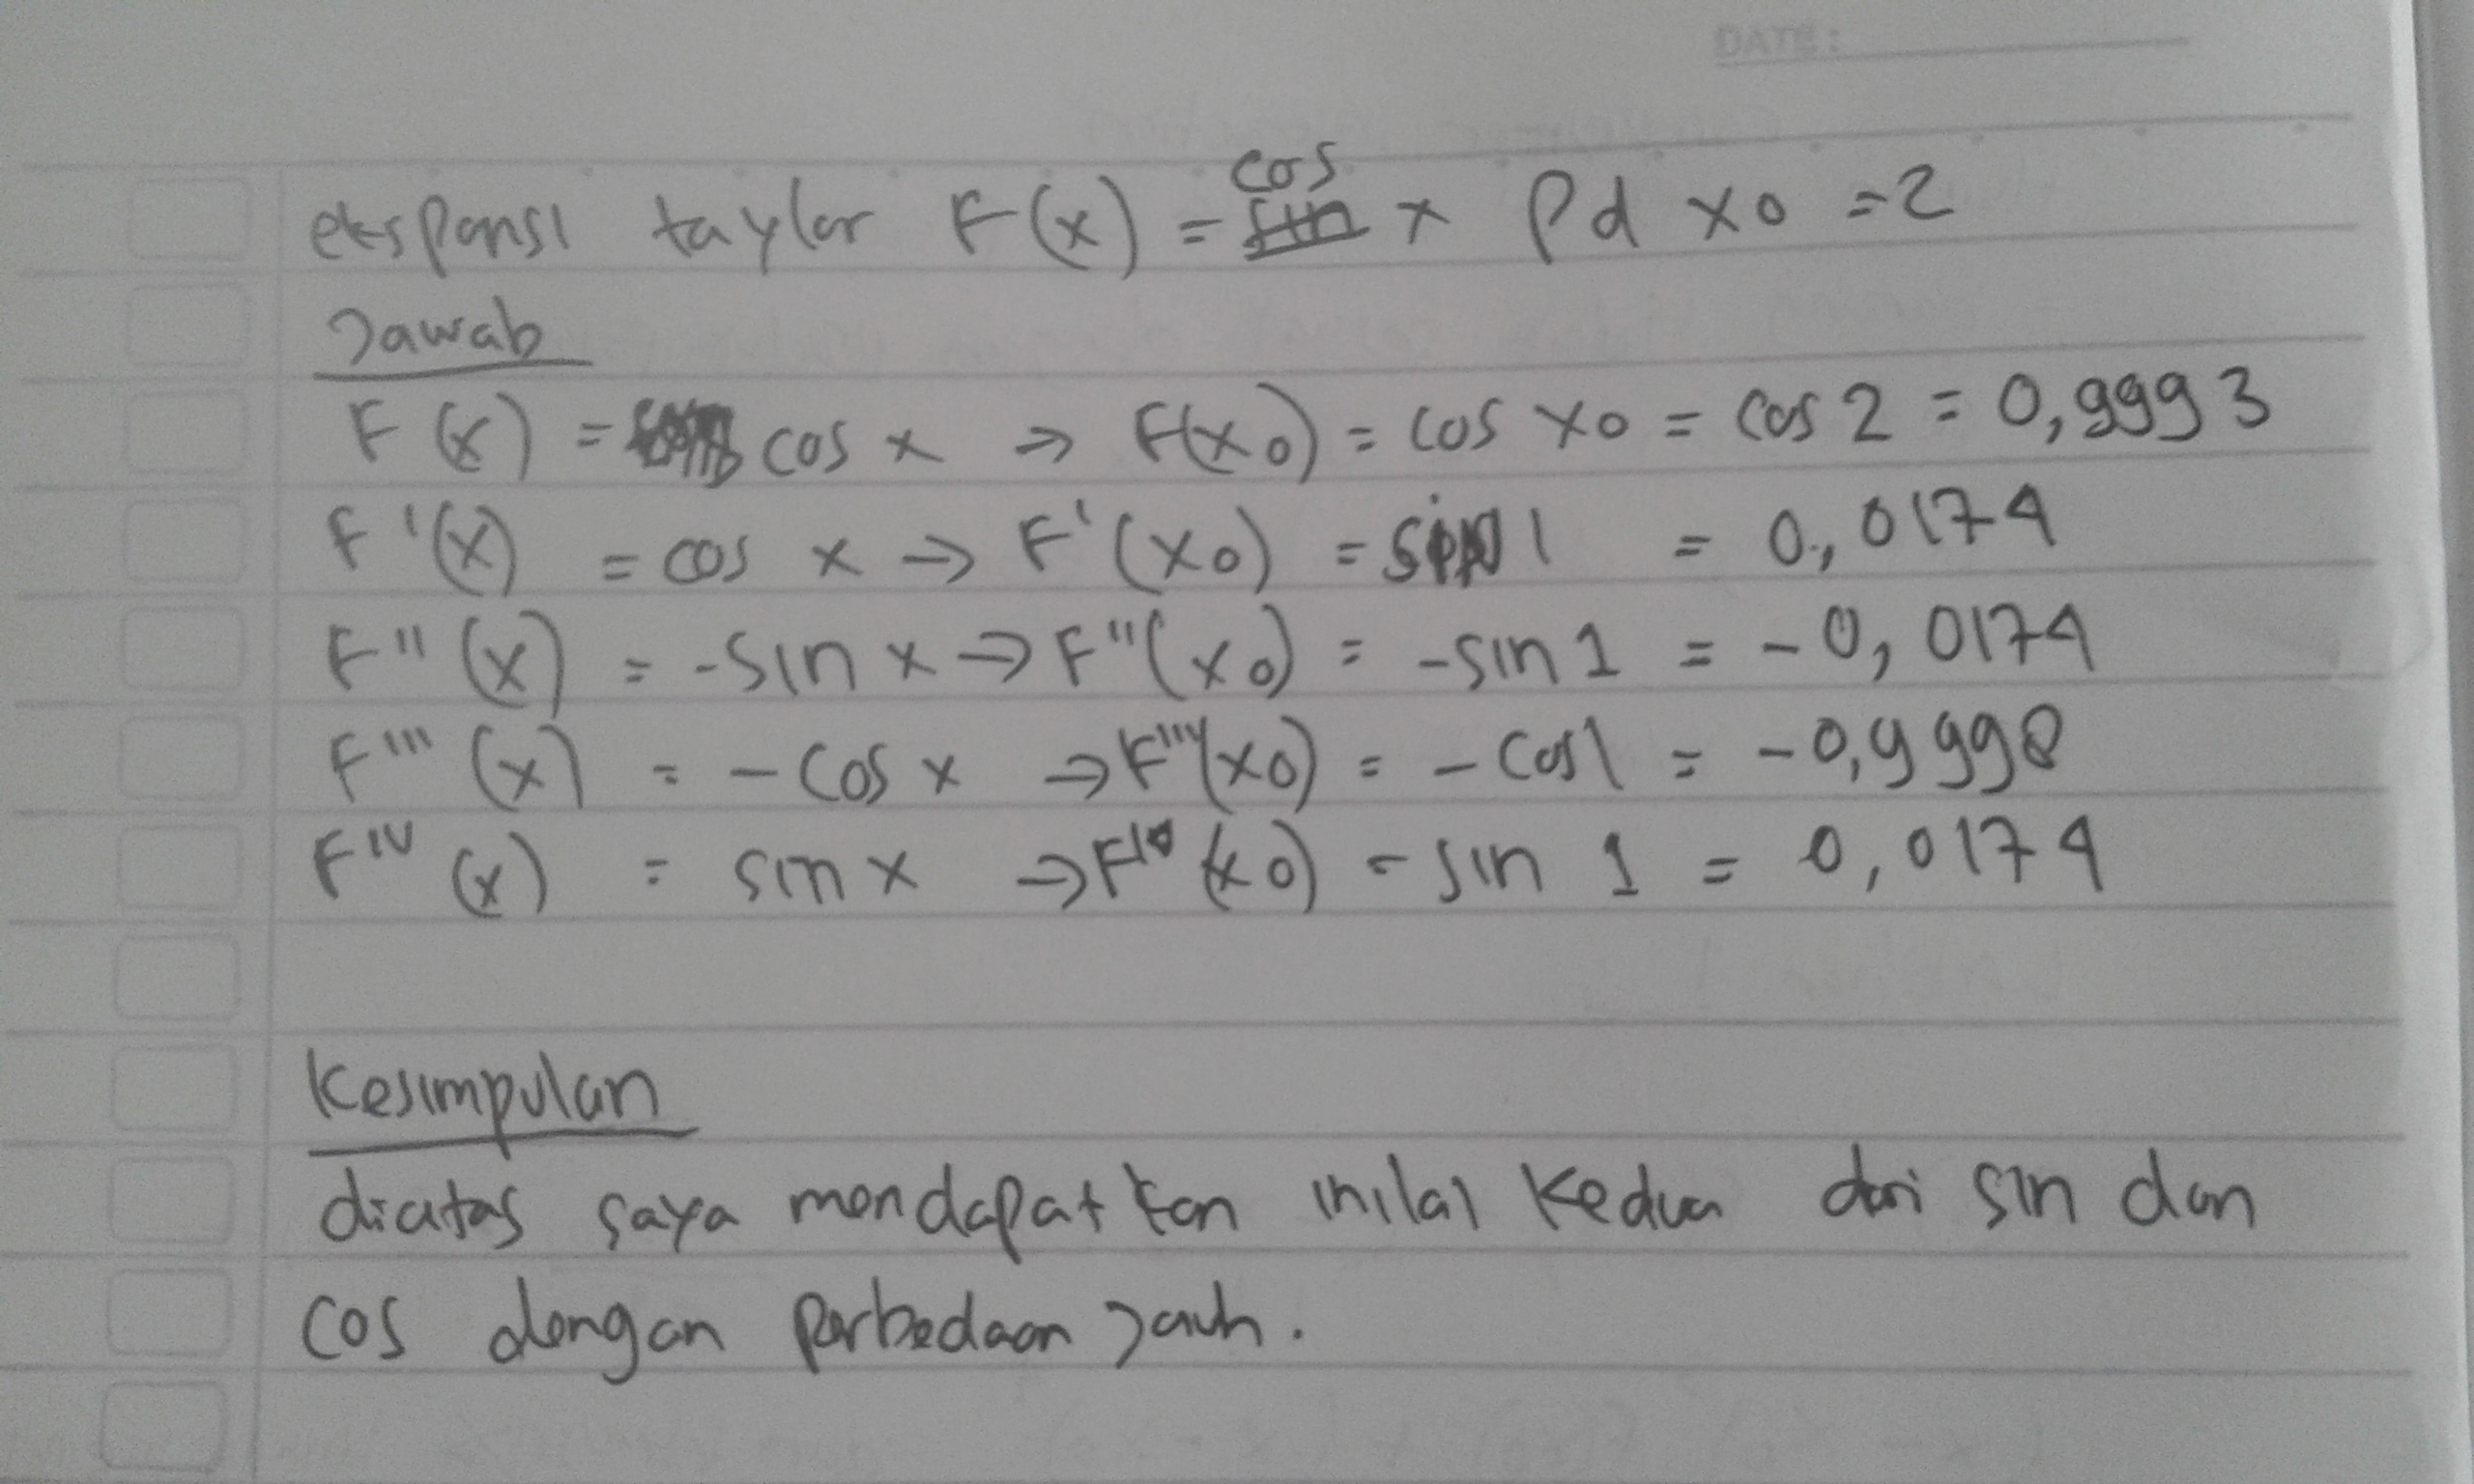 DATE:
ekspansi taylor F(x) = cos x Pd x0 = 2
Jawab
F(x) = cos x ⇒ F(x0) = cos x0 = cos 2 = 0,9993
F'(x) = cos x → F'(x0) = sin 1 = 0,0174
F''(x) = -sin x → F''(x0) = -sin 1 = -0,0174
F'''(x) = - cos x → F'''(x0) = - cos 1 = -0,9998
F^IV (x) = sin x → F^IV (x0) = sin 1 = 0,0174
Kesimpulan
diatas saya mendapatkan inilai kedua dari sin dan
cos dengan perbedaan jauh.